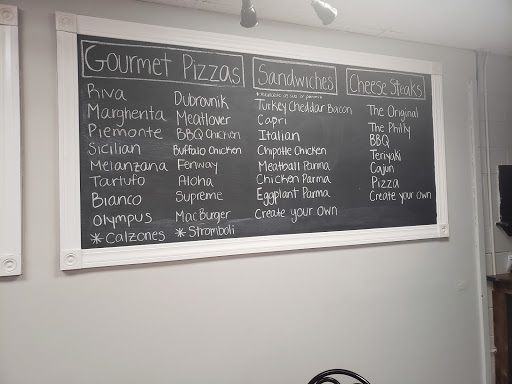 Gourmet Pizzas
Riva
Margherita
Piemonte
Sicilian
Melanzana
Tartufo
Bianco
Olympus
*Calzones
Dubrovnik
Meatlover
BBQ Chicken
Buffalo Chicken
Fenway
Aloha
Supreme
MacBurger
*Stromboli
Sandwiches
Turkey Cheddar Bacon
Capri
Italian
Chipotle Chicken
Meatball Parma
Chicken Parma
Eggplant Parma
Create your own
Cheese Steaks
The Original
The Philly
BBQ
Teriyaki
Cajun
Pizza
Create your own